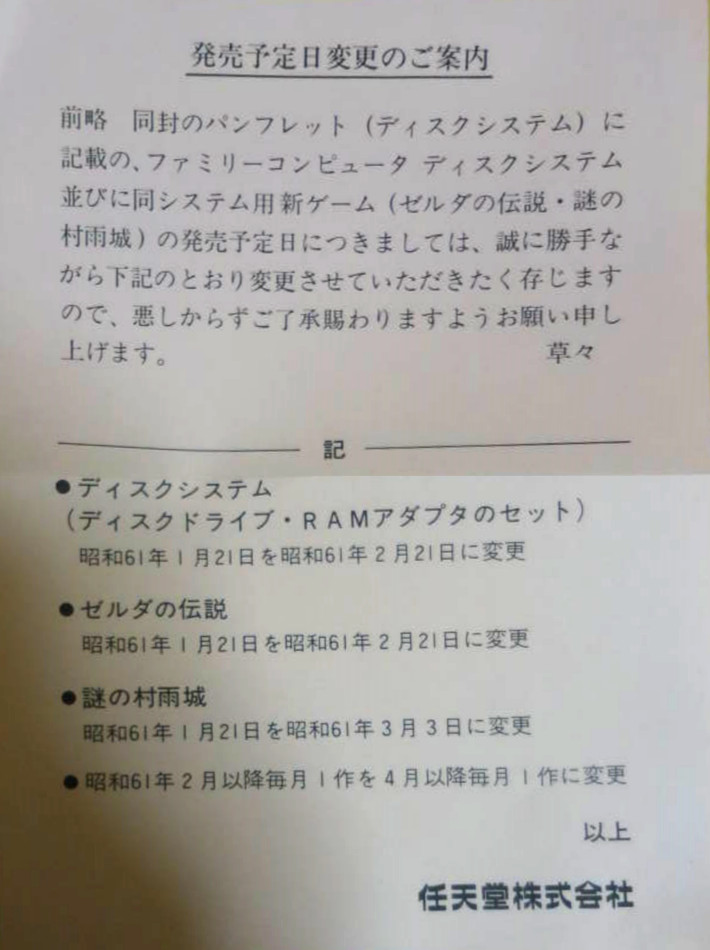 発売予定日変更のご案内
前略　同封のパンフレット（ディスクシステム）に
記載の、ファミリーコンピュータ ディスクシステム
並びに同システム用新ゲーム（ゼルダの伝説・謎の
村雨城）の発売予定日につきましては、誠に勝手な
がら下記のとおり変更させていただきたく存じます
ので、悪しからずご了承賜わりますようお願い申し
上げます。　草々
記
●ディスクシステム
（ディスクドライブ・RAMアダプタのセット）
昭和61年1月21日を昭和61年2月21日に変更
●ゼルダの伝説
昭和61年1月21日を昭和61年2月21日に変更
●謎の村雨城
昭和61年1月21日を昭和61年3月3日に変更
●昭和61年2月以降毎月1作を4月以降毎月1作に変更
以上
任天堂株式会社